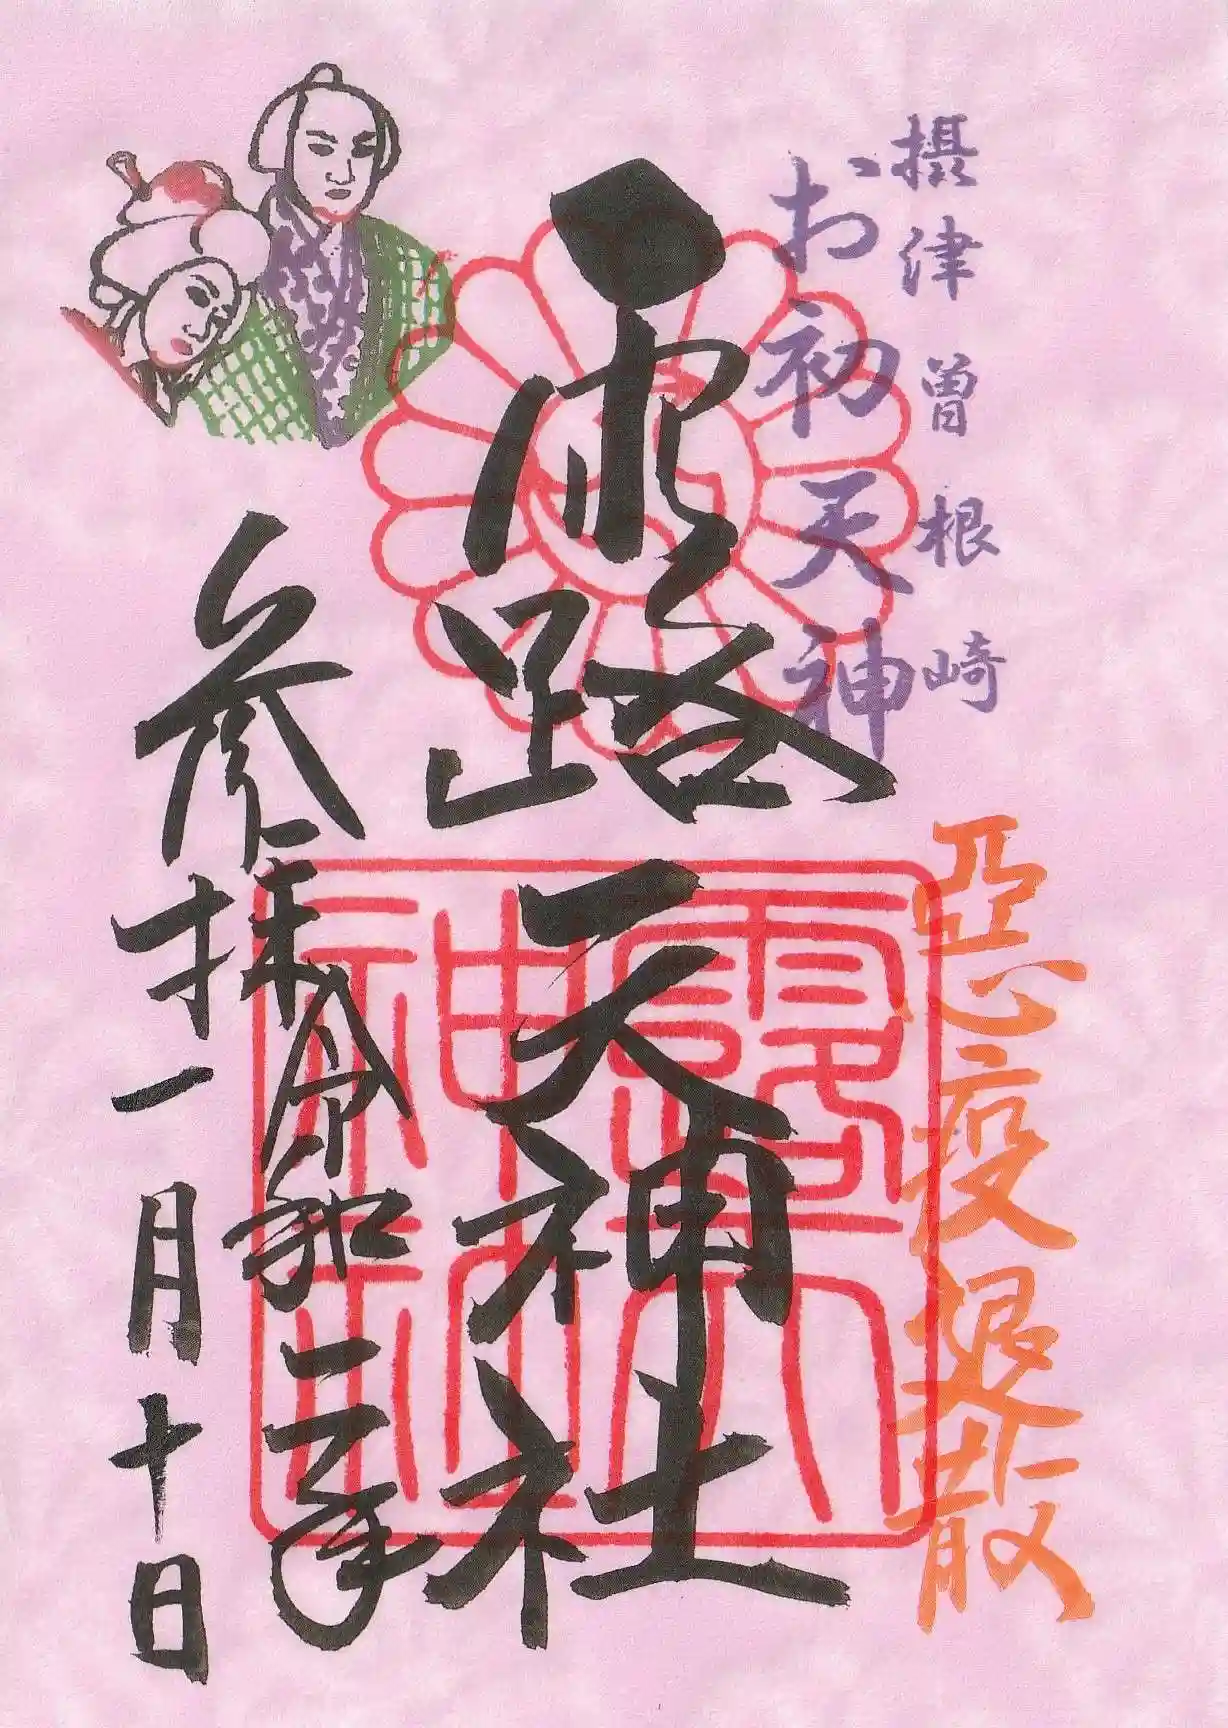 摂津曽根崎
お初天神
惡疫退散
露天神社
露天
神社
参拝
令和三年
一月十日